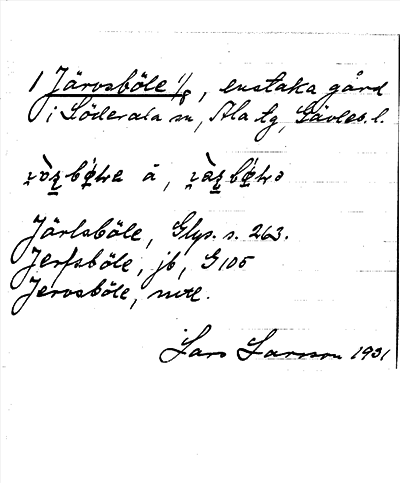 1 Järvsböle 1/8, enstaka gård
i Söderala sn, Ala tg, Gävleb. l.
å,
Järlsböle, Glys. s. 263.
Jerfsböle, jb, G 105
Jervsböle, mtl.
Lars Larsson 1931